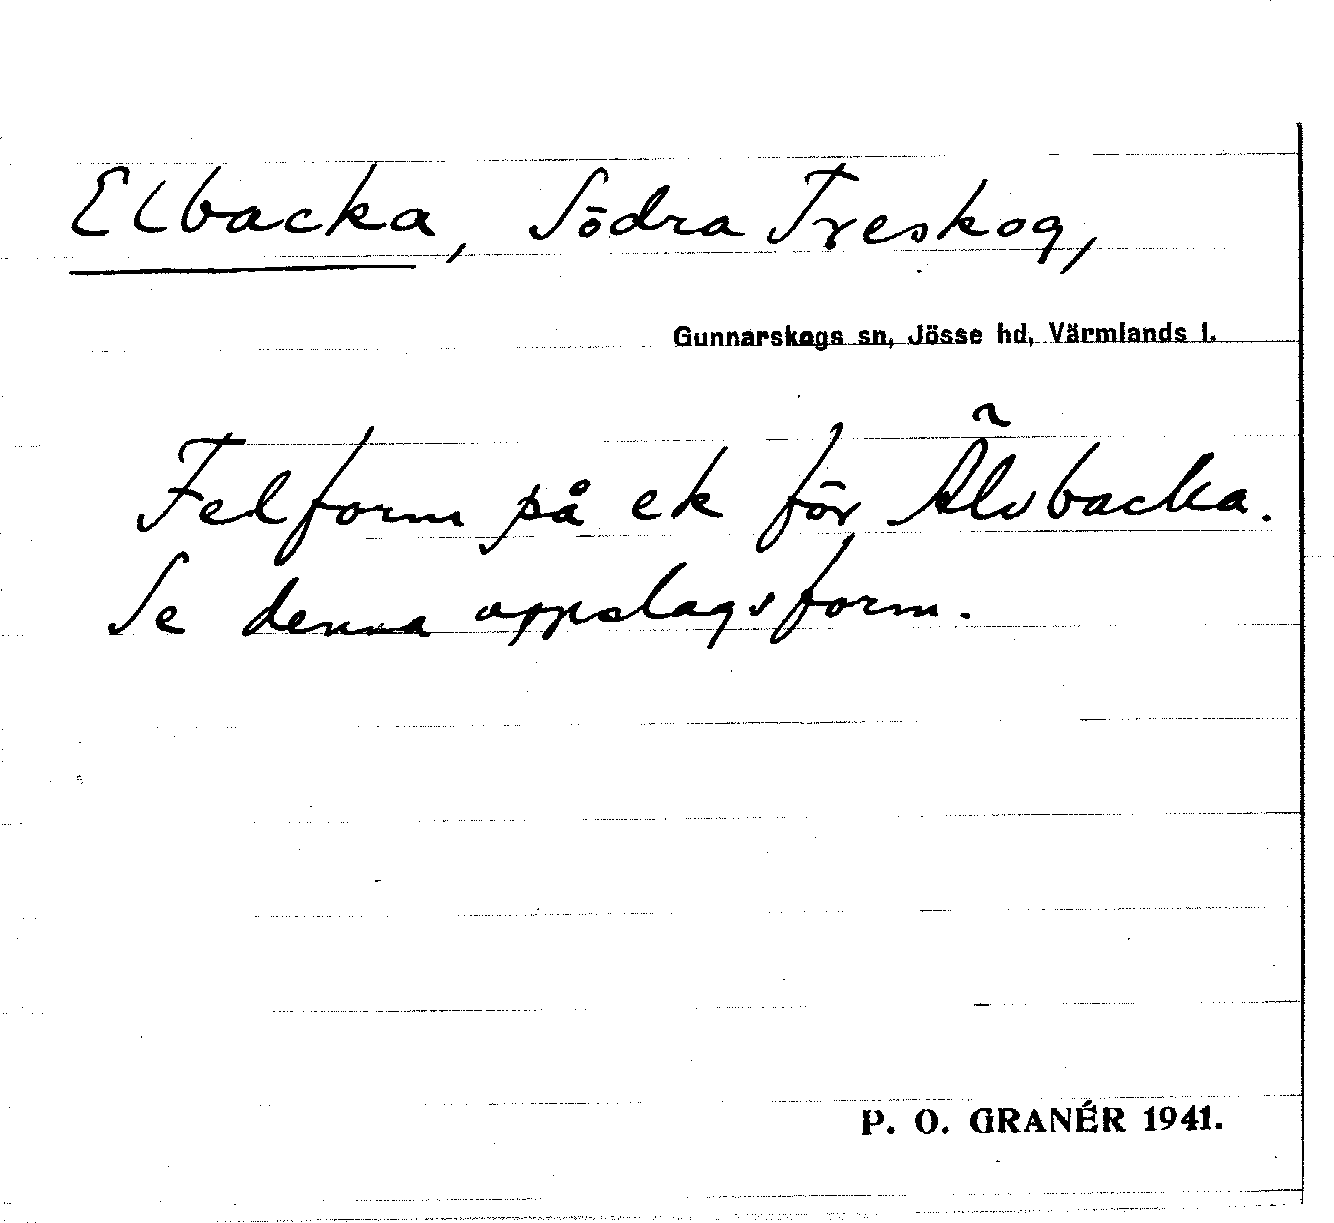 Elbacka, Södra Treskog,
Gunnarskogs sn, Jösse hd, Värmlands l.
Felform på ek för Älvbacka.
Se denna uppslagsform.
P. O. GRANÉR 1941.